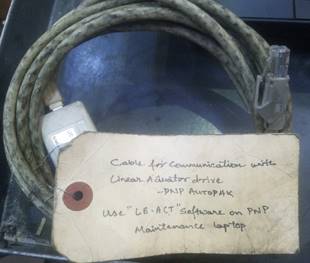 Cable for Communication with
Linear Actuator drive
-PNP AUTOPAK
Use "LE-ACT" Software on PNP
Maintenance laptop